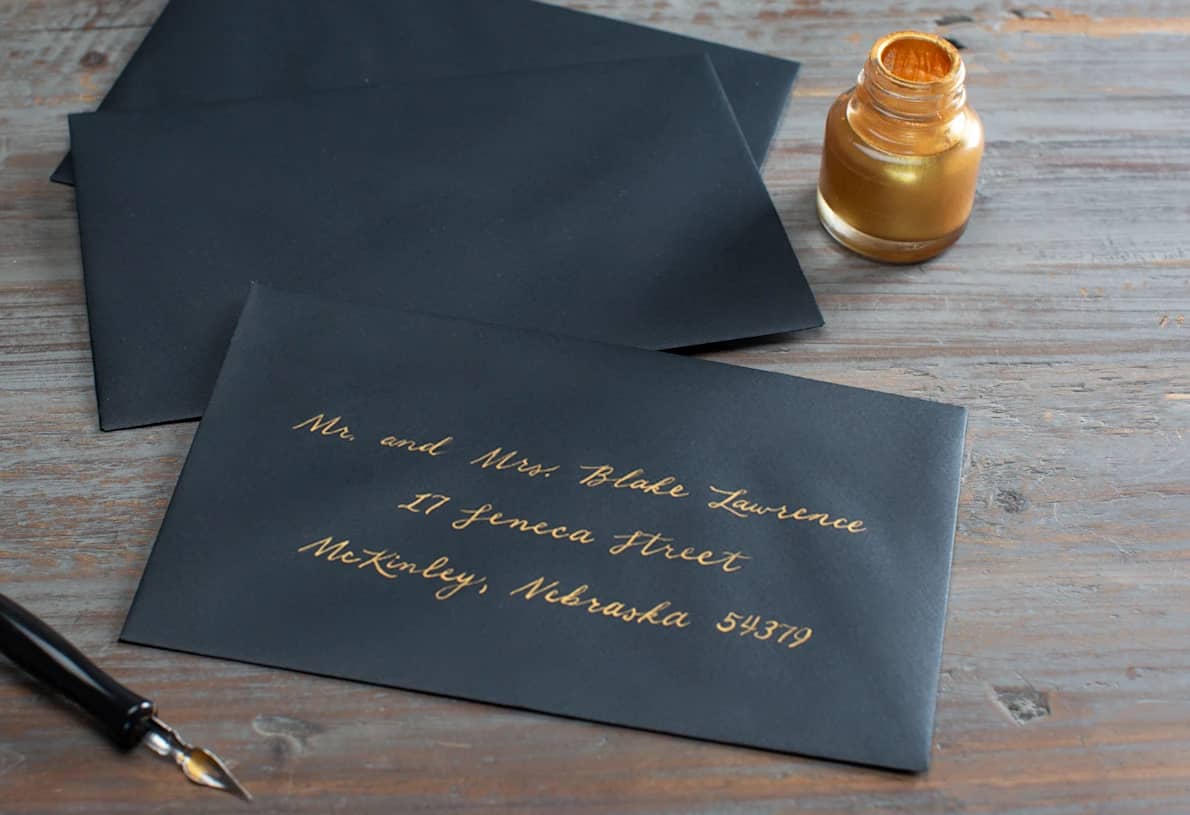 Mr. and Mrs. Blake Lawrence
17 Seneca Street
McKinley, Nebraska 54379